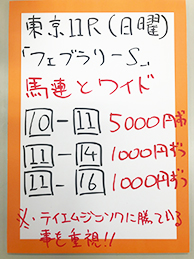 東京11R(日曜)
「フェブラリーS」
馬連とワイド
10-11 5000円ずつ
11-14 1000円ずつ
11-16 1000円ずつ
※テイエムジンソクに勝っている
事を重視!!